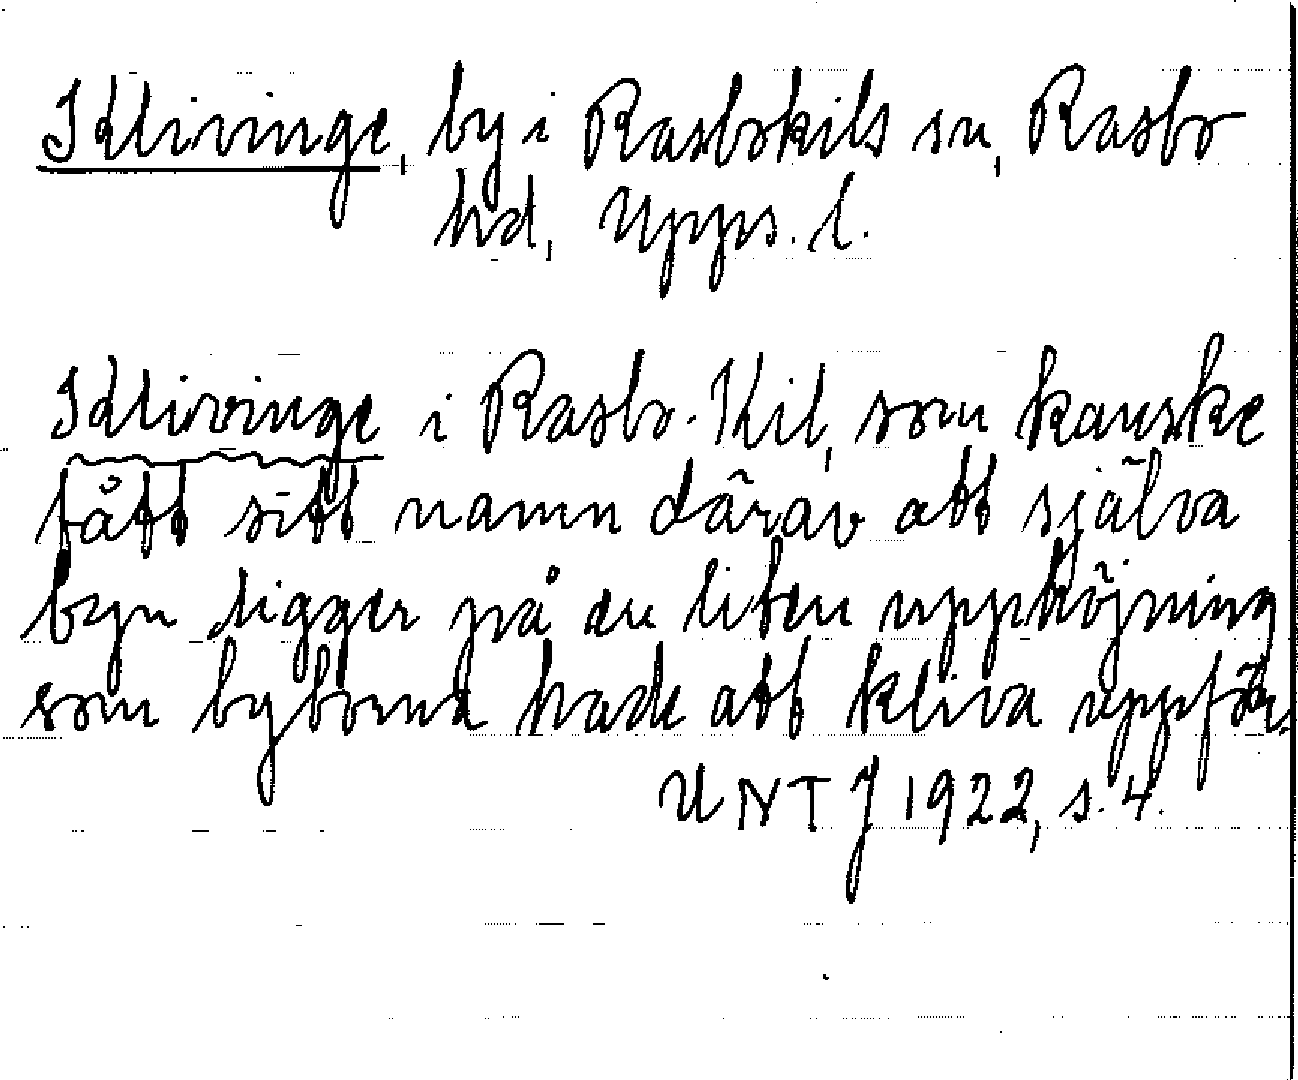 Klivinge, by i Rasbokils sn, Rasbo
hd, Upps. l.
Klivinge i Rasbo-Kil, som kanske
fått sitt namn därav att själva
byn ligger på en liten upphöjning
som byborna hade att kliva uppför.
UNTJ 1922, s. 4.